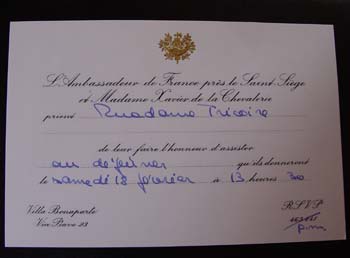 L'Ambassadeur de France près le Saint-Siège
et Madame Xavier de la Chevalerie
prient Madame Tricoire
de leur faire l'honneur d'assister
au déjeuner qu'ils donneront
le samedi 18 février à 13 heures 30
Villa Bonaparte
Via Piave 23
R.S.V.P.
p.m.